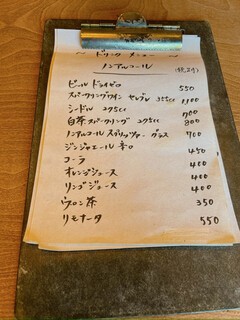 ～ ドリンク メニュー ～
ノンアルコール (税込)
ビール ドライゼロ 550
スパークリングワイン セレブレ 355cc 1100
シードル 275cc 700
白茶スパークリング 275cc 800
ノンアルコール スプリッツァー グラス 700
ジンジャエール 辛口 450
コーラ 400
オレンジジュース 400
リンゴジュース 400
ウーロン茶 350
リモナータ 550